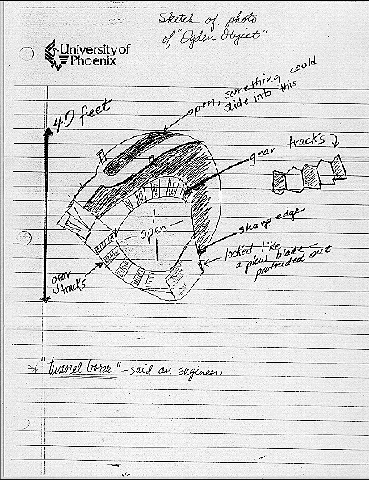 Sketch of photo
of "Ogden Object"
University of
Phoenix
open, something could
slide into this
40 feet
gear
tracks
open
sharp edge
looked like
a plow blade
protruded out
gear
tracks
"tunnel borer" - said an engineer